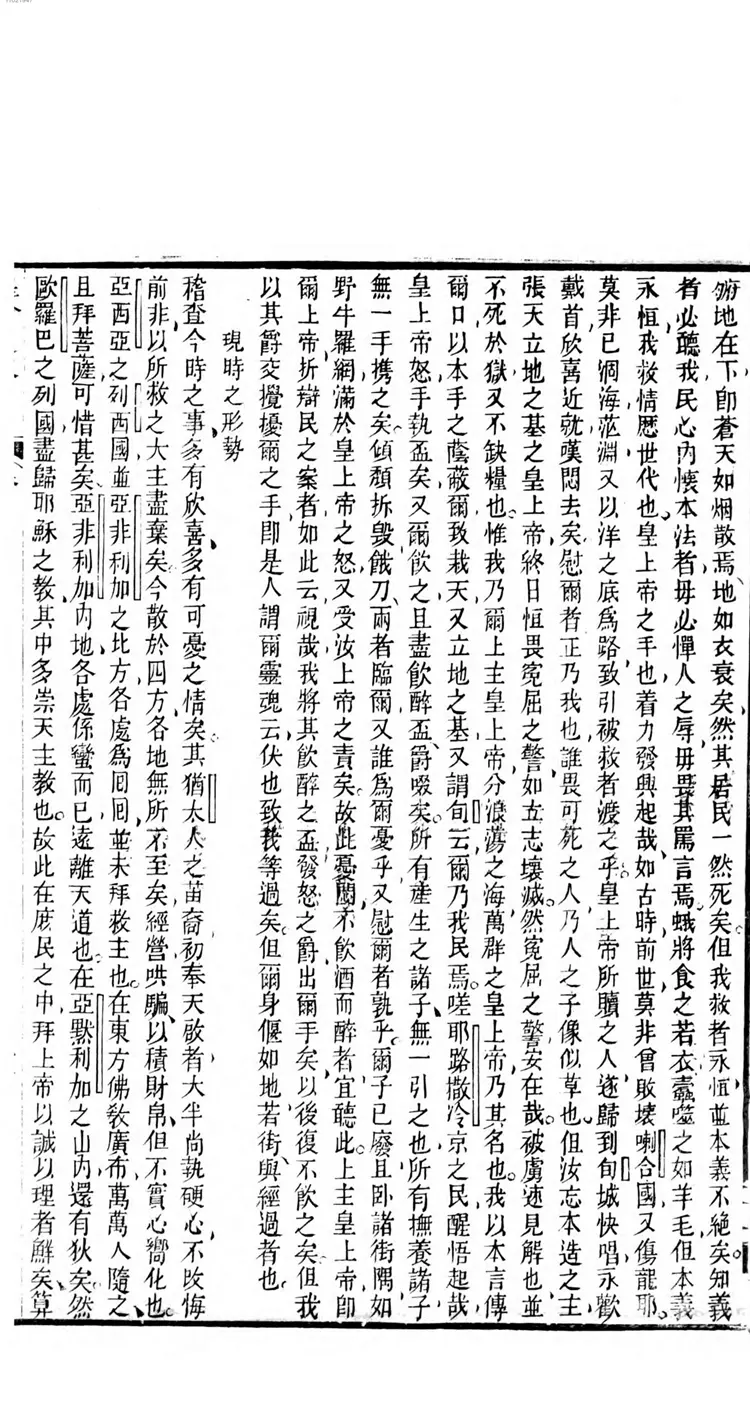 俯地在下卽蒼天如烟散焉地如衣衰矣然其居民一然死矣但我救者永恒並本義不絕矣知義
者必聽我民心內懷本法者毋必憚人之辱毋畏其罵言焉蛾將食之若衣蠹噬之如羊毛但本義
永恒我救情歷世代也皇上帝之手也着力發興起哉如古時前世莫非曾敗壞喇合國又傷龍耶
莫非已涸海茫淵又以洋之底爲路致引被救者渡之乎皇上帝所贖之人遂歸到旬城快唱永歡
戴首欣喜近就嘆悶去矣慰爾者正乃我也誰畏可死之人乃人之子像似草也但汝忘本造之主
張天立地之基之皇上帝終日恒畏寃屈之警如立志壞滅然寃屈之警安在哉被虜速見解也並
不死於獄又不缺糧也惟我乃爾上主皇上帝分浪蕩之海萬群之皇上帝乃其名也我以本言傳
爾口以本手之蔭蔽爾致栽天又立地之基又謂旬云爾乃我民焉嗟耶路撒冷京之民醒悟起哉
皇上帝怒手執盃矣又爾飲之且盡飲醉盃爵啜矣所有產生之諸子無一引之也所有撫養諸子
無一手携之矣傾頹拆毀餓刀兩者臨爾又誰爲爾憂乎又慰爾者孰乎爾子已廢且卧諸街隅如
野牛羅網滿於皇上帝之怒又受汝上帝之責矣故此憂闌不飲酒而醉者宜聽此上主皇上帝卽
爾上帝折辯民之案者如此云視哉我將其飲醉之盃發怒之爵出爾手矣以後復不飲之矣但我
以其爵交攪擾爾之手卽是人謂爾靈魂云伏也致我等過矣但爾身偃如地若街與經過者也
現時之形勢
稽查今時之事多有欣喜多有可憂之情矣其猶太人之苗裔初奉天敬者大半尚執硬心不改悔
前非以所救之大主盡棄矣今散於四方各地無所不至矣經營哄騙以積財帛但不實心嚮化也
亞西亞之列西國並亞非利加之北方各處爲囘囘並未拜救主也在東方佛敎廣布萬萬人隨之
且拜菩薩可惜甚矣亞非利加內地各處係蠻而已遠離天道也在亞默利加之山內還有狄矣然
歐羅巴之列國盡歸耶穌之教其中多崇天主教也故此在庶民之中拜上帝以誠以理者鮮矣算